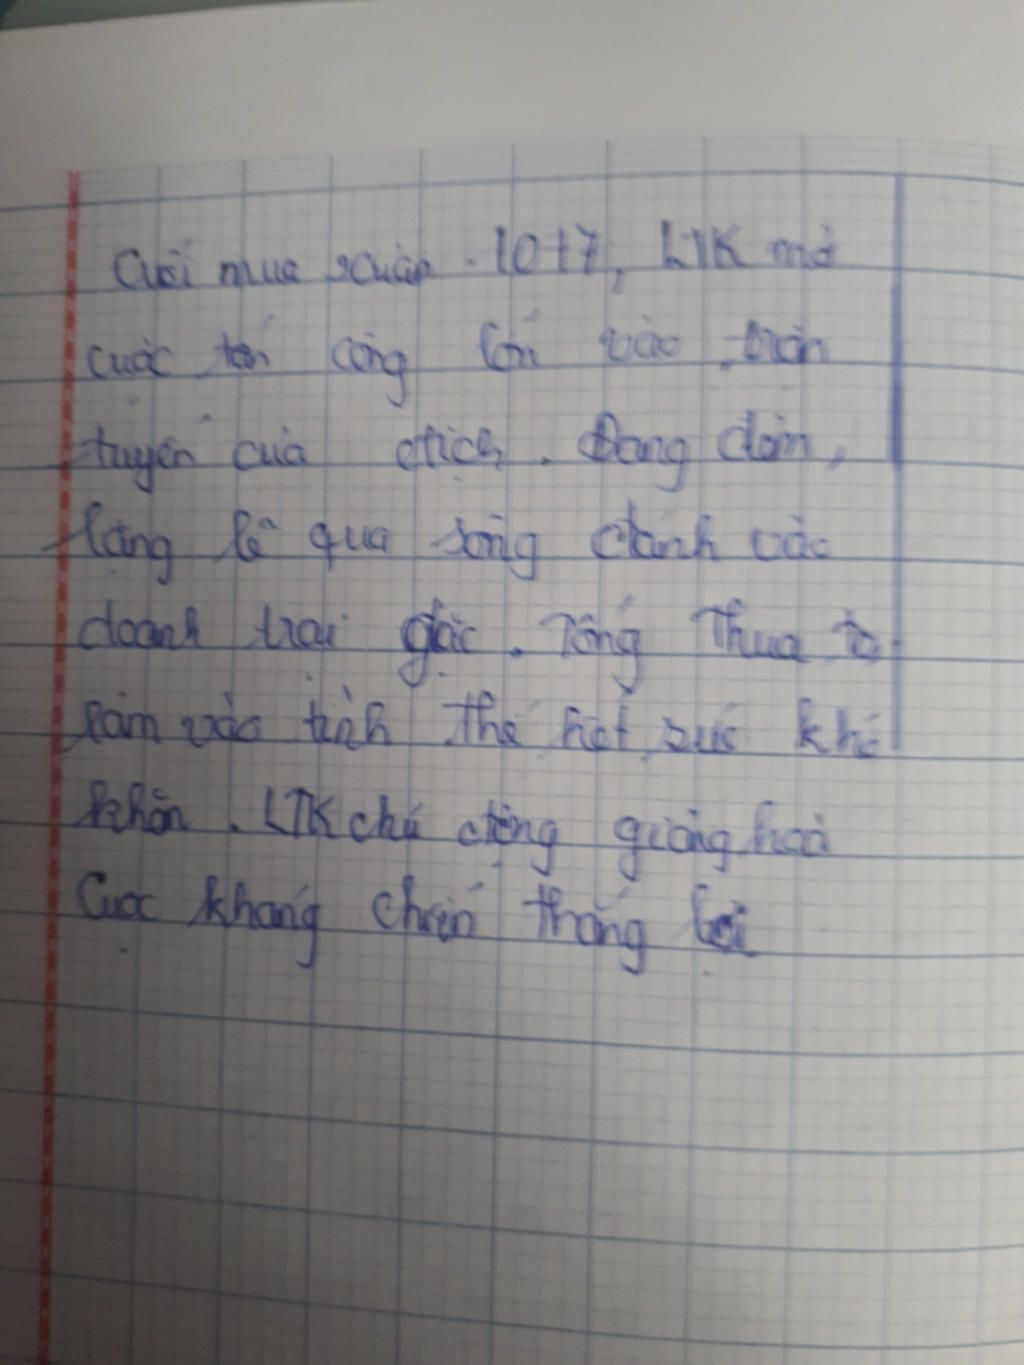 Cuối mua xuân 1077, LTK mở
cuộc tấn công lớn vào trận
tuyến của địch. Đang đêm,
lặng lẽ qua sông đánh vào
doanh trại giặc. Tống Thua to
lâm vào tình thế hết sức khó
khăn. LTK chủ động giảng hoà
Cuộc kháng chiến thắng lợi